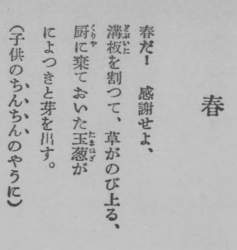 春
春だ！　感謝せよ、
溝板を割つて、草がのび上る、
厨に棄ておいた玉葱が
によつきと芽を出す。
（子供のちんちんのやうに）